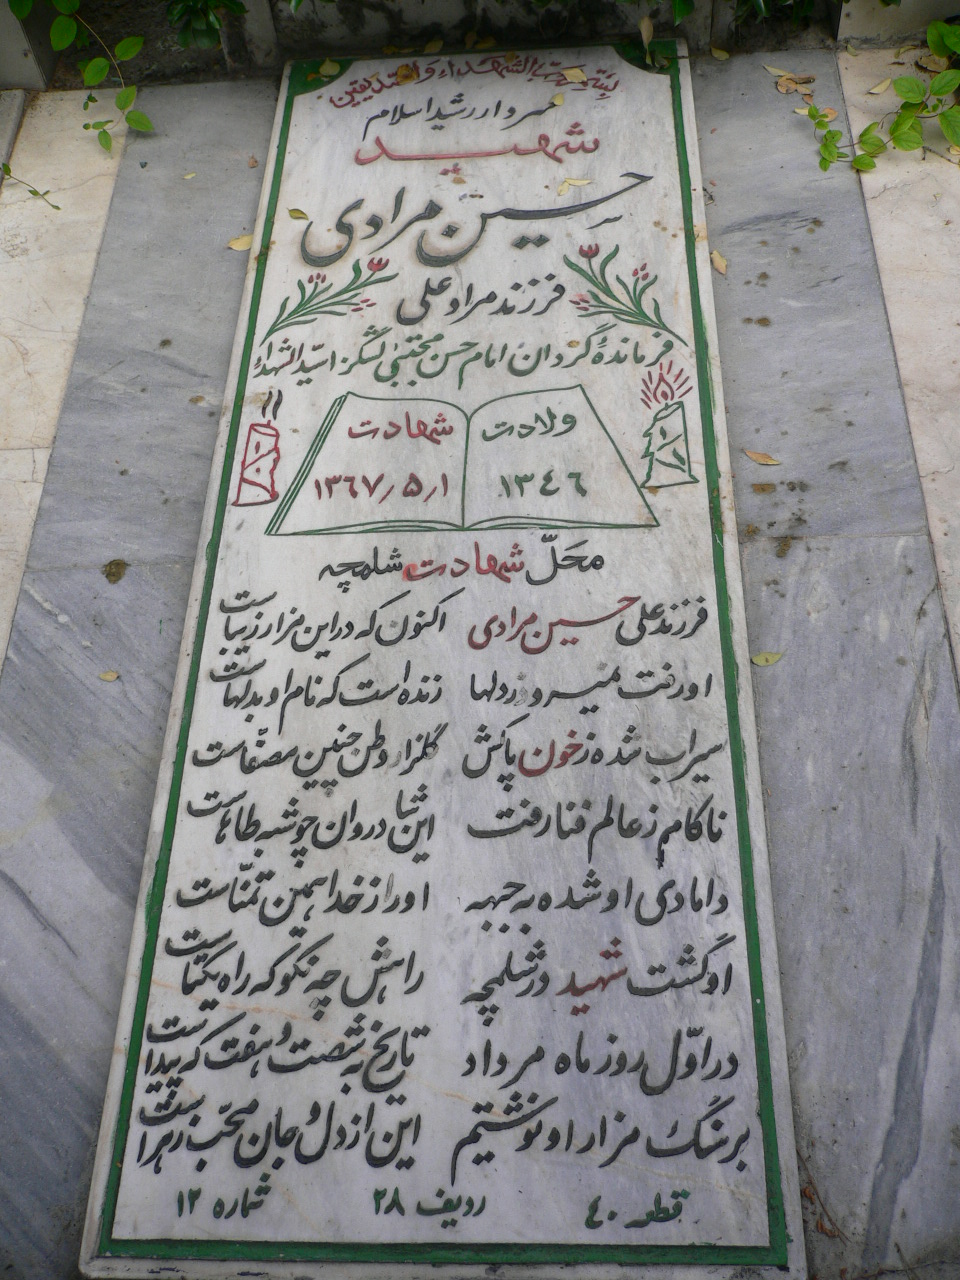 بسم رب الشهداء والصدیقین
سردار رشید اسلام
شهید
حسین مرادی
فرزند مرادعلی
فرماندهٔ گردان امام حسن مجتبیٰ لشگر ۱۰ سیّدالشهداء
ولادت
۱۳۴۶
شهادت
۱۳۶۷/۵/۱
محلّ شهادت شلمچه
فرزند علی حسین مرادی
اکنون که در این مزار زیباست
او رفت نمیرود ز دلها
زنده است که نام او بدلهاست
سیراب شده ز خون پاکش
گلزار وطن چنین مصفّاست
ناکام ز عالم فنا رفت
این شاد روان چو شبه طاهاست
دامادی او شده به جبهه
او را از خدا همین تمنّاست
او گشت شهید در شلمچه
راهش چه نکو که راه یکتاست
در اوّل روز ماه مرداد
تاریخ به شصت و هفت که پیداست
بر سنگ مزار او نوشتیم
این از دل و جان محبّ زهراست
قطعه ۴۰
ردیف ۲۸
شماره ۱۲